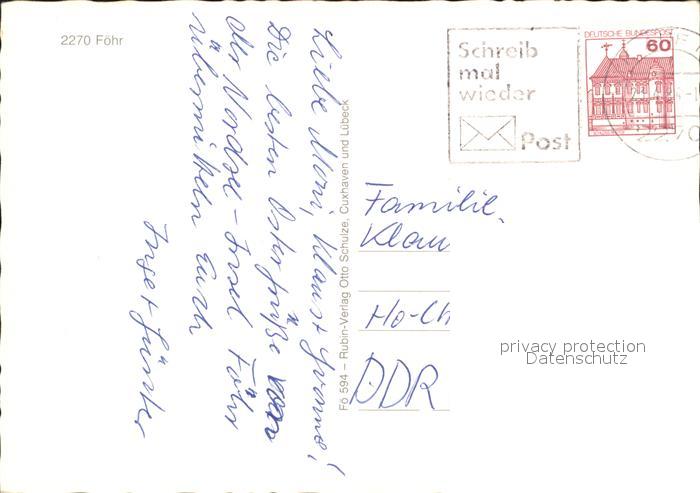 2270 Föhr
Liebe Moni, Klaus + Yvonne!
Die besten Ostergrüße von
der Nordsee-Insel Föhr
übermitteln Euch
Inge + Günter
Fö 594 – Rubin-Verlag Otto Schulze, Cuxhaven und Lübeck
Schreib
mal
wieder
Post
DEUTSCHE BUNDESPOST
60
Familie
Klau
Ho-Ch
DDR
privacy protection
Datenschutz